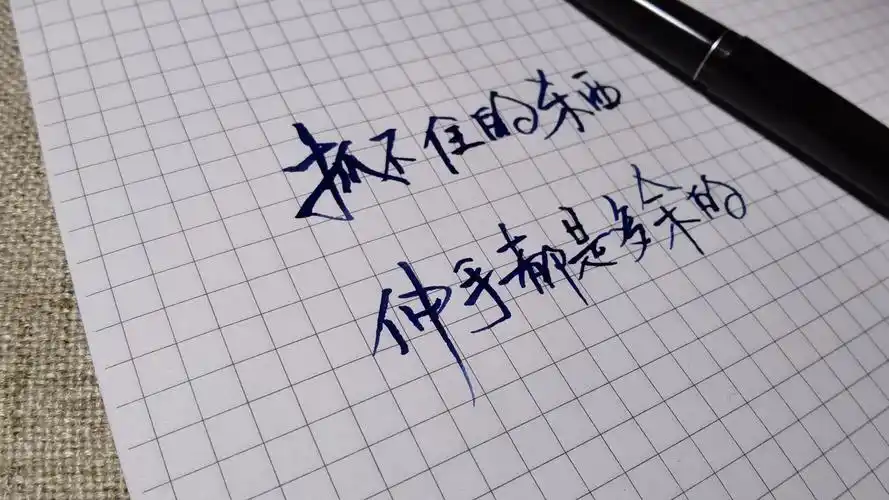 抓不住的东西
伸手都是多余的